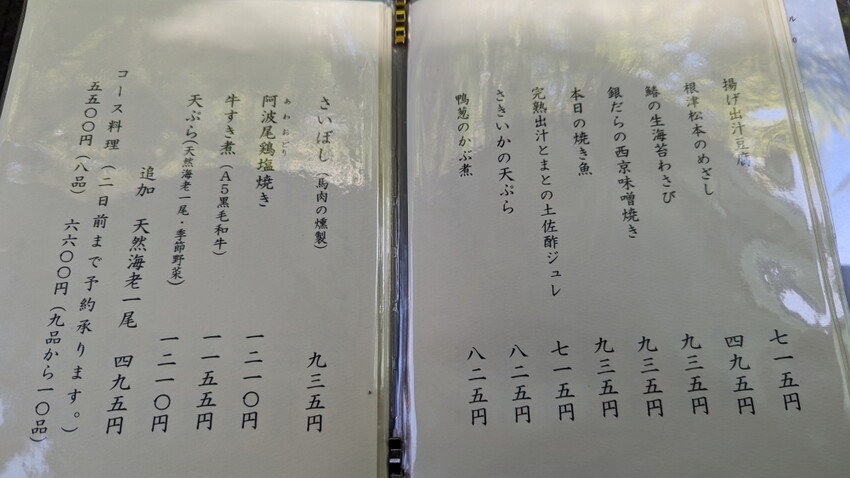 揚げ出汁豆腐 七一五円
根津松本のめざし 四九五円
鰆の生海苔わさび 九三五円
銀だらの西京味噌焼き 九三五円
本日の焼き魚 九三五円
完熟出汁とまとの土佐酢ジュレ 七一五円
さきいかの天ぷら 八二五円
鴨葱のかぶ煮 八二五円
さいぼし（馬肉の燻製） 九三五円
あわおどり
阿波尾鶏塩焼き 一二一〇円
牛すき煮（A5黒毛和牛） 一一五五円
天ぷら（天然海老一尾・季節野菜） 一二一〇円
追加 天然海老一尾 四九五円
コース料理（二日前まで予約承ります。）
五五〇〇円（八品） 六六〇〇円（九品から一〇品）